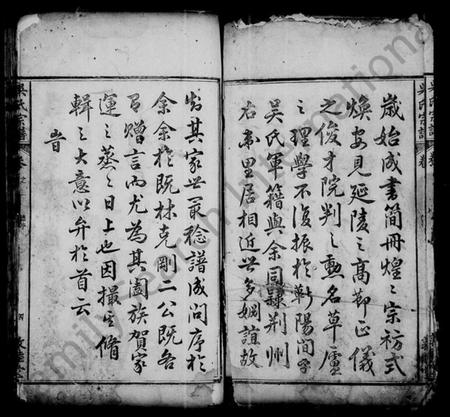 歲始成書簡冊煌煌宗祊式
煥安見延陵之高節正儀
之俊才院判之勳名草廬
之理學不復振於蘄陽間乎
吳氏軍籍與余同隸荆州
右衛里居相近世多姻誼故
出其家世最稔譜成問序於
余余於既林克剛二公既各
有贈言而尤為其闔族賀家
運之蒸蒸日上也因撮其脩
輯之大意以弁於首云
旹
吳氏宗譜
吳氏宗譜
Family Search International